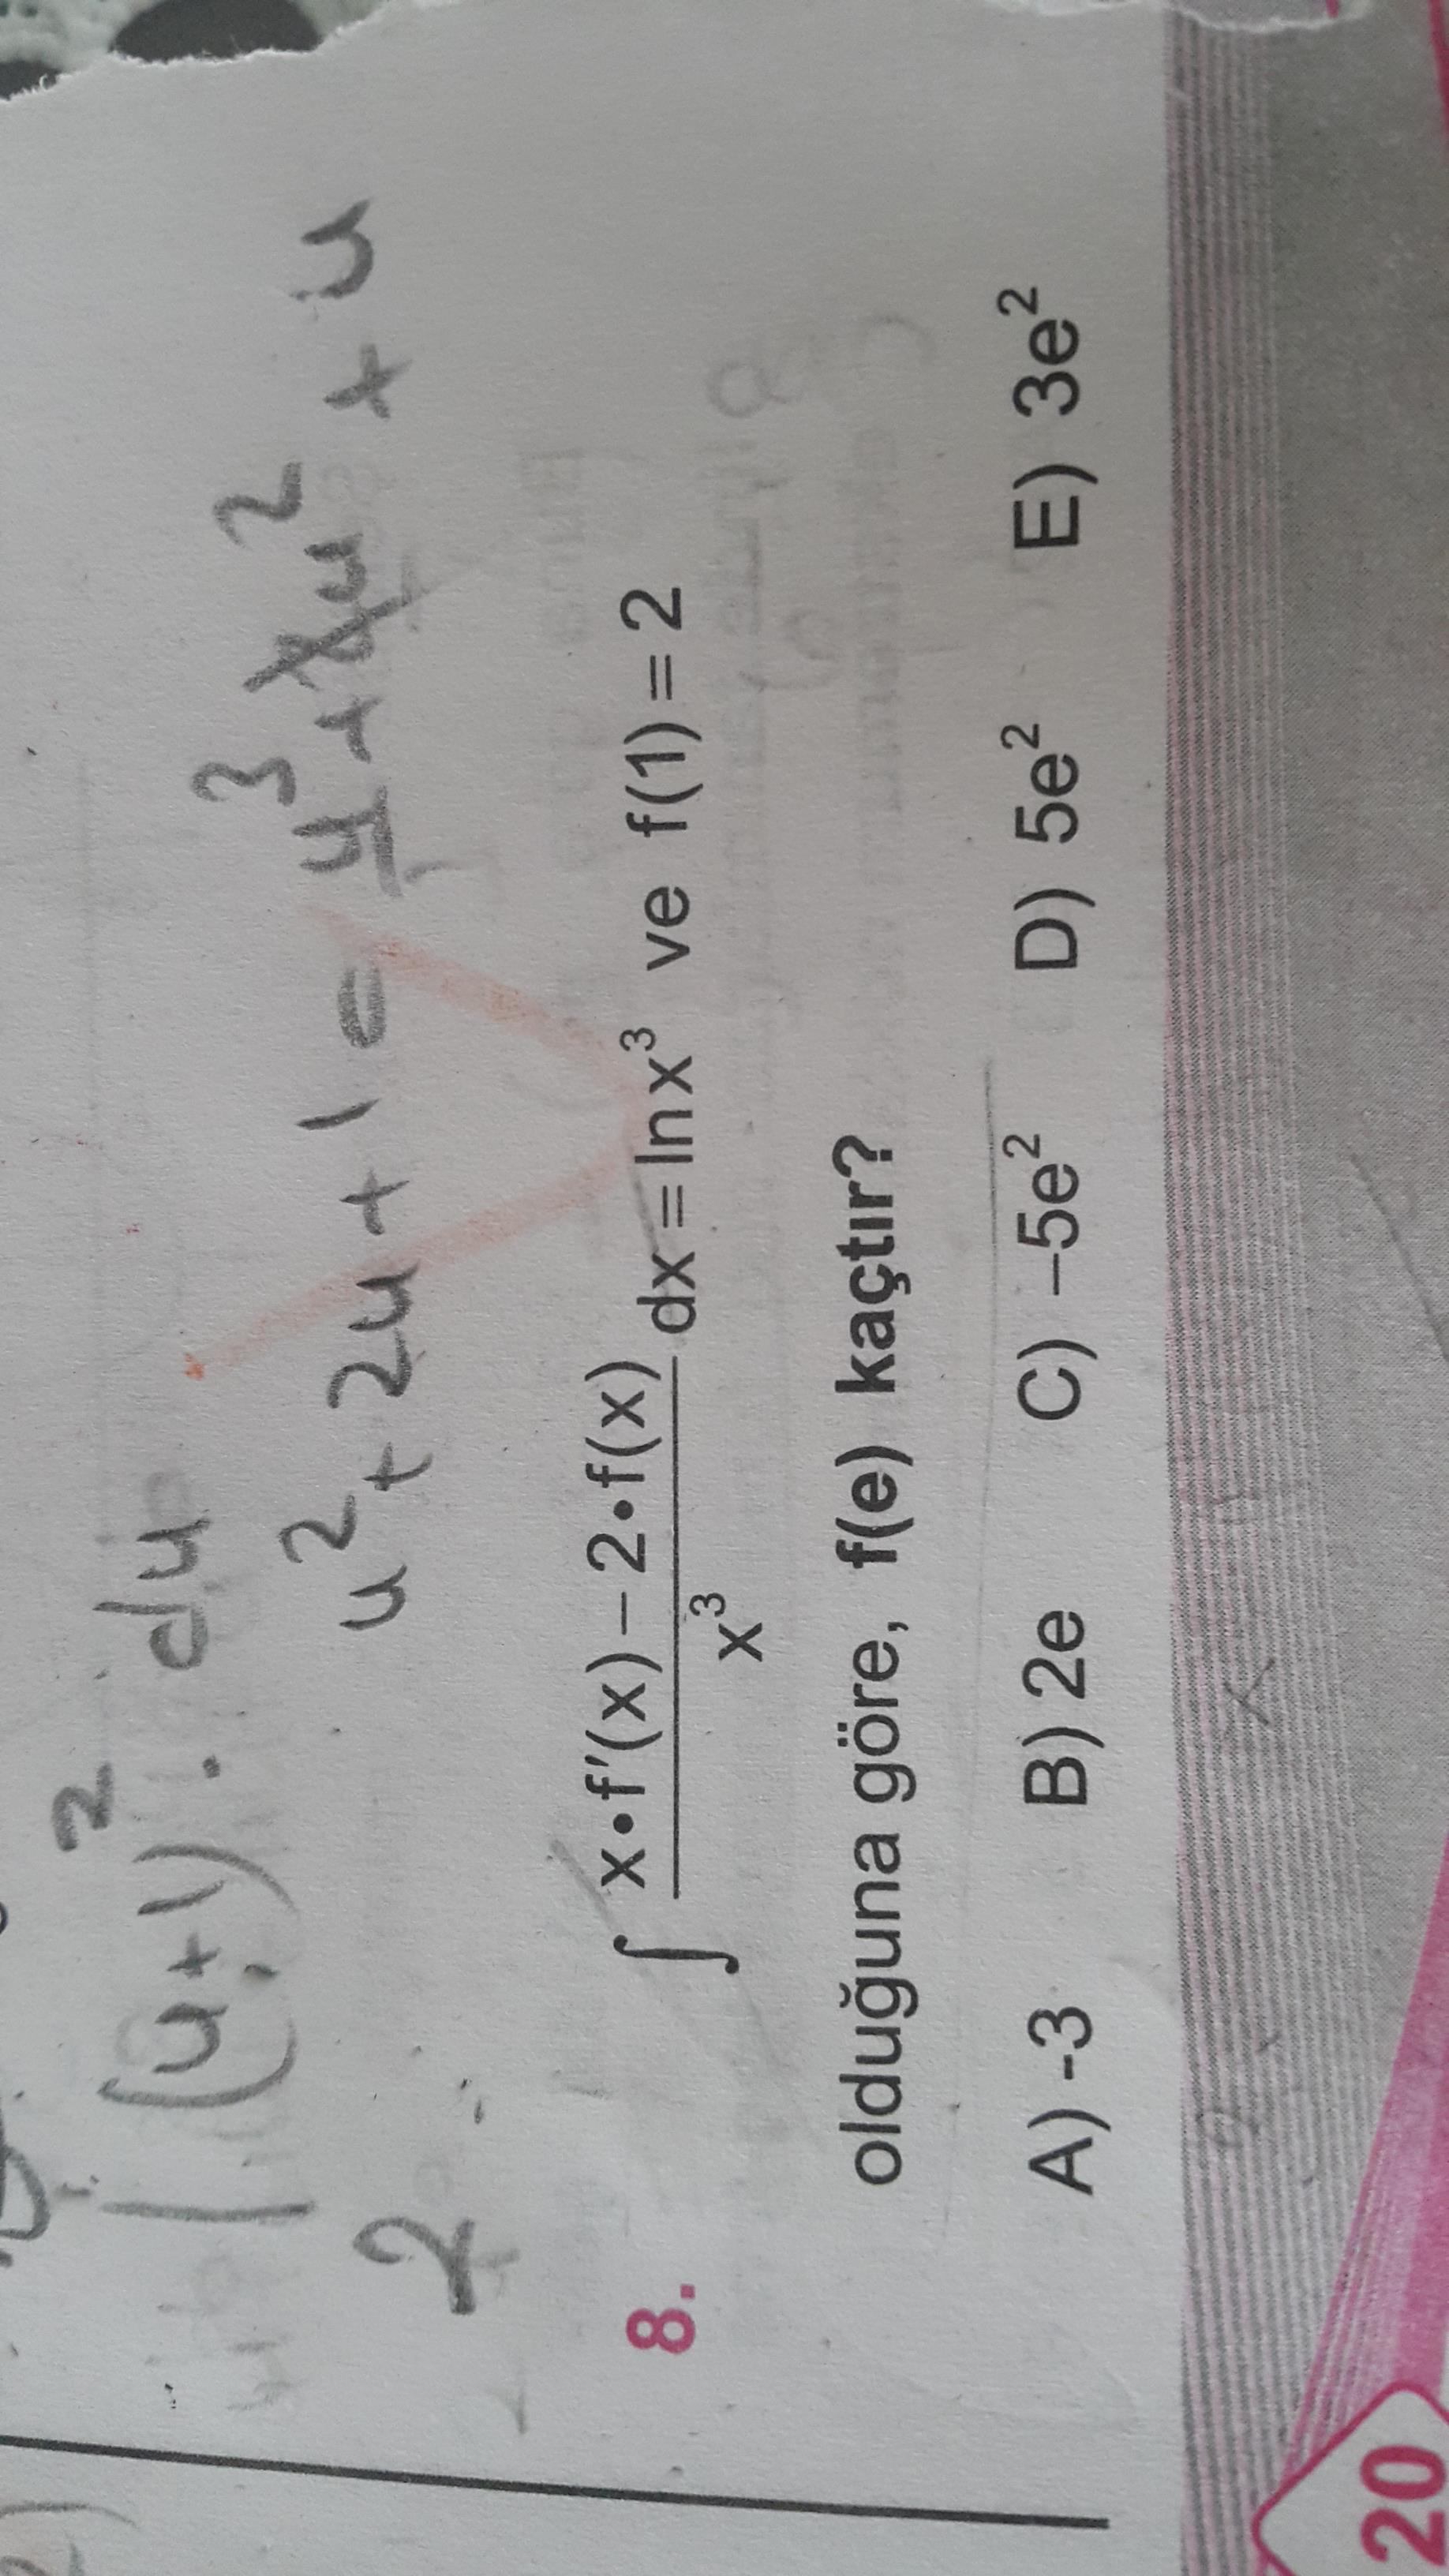 (u+1)². du
2
u² + 2u + 1 = u³ + 2u² + u
8. ∫ x•f'(x) – 2•f(x) / x³ dx = lnx³ ve f(1) = 2
olduğuna göre, f(e) kaçtır?
A) -3 B) 2e C) –5e² D) 5e² E) 3e²
20